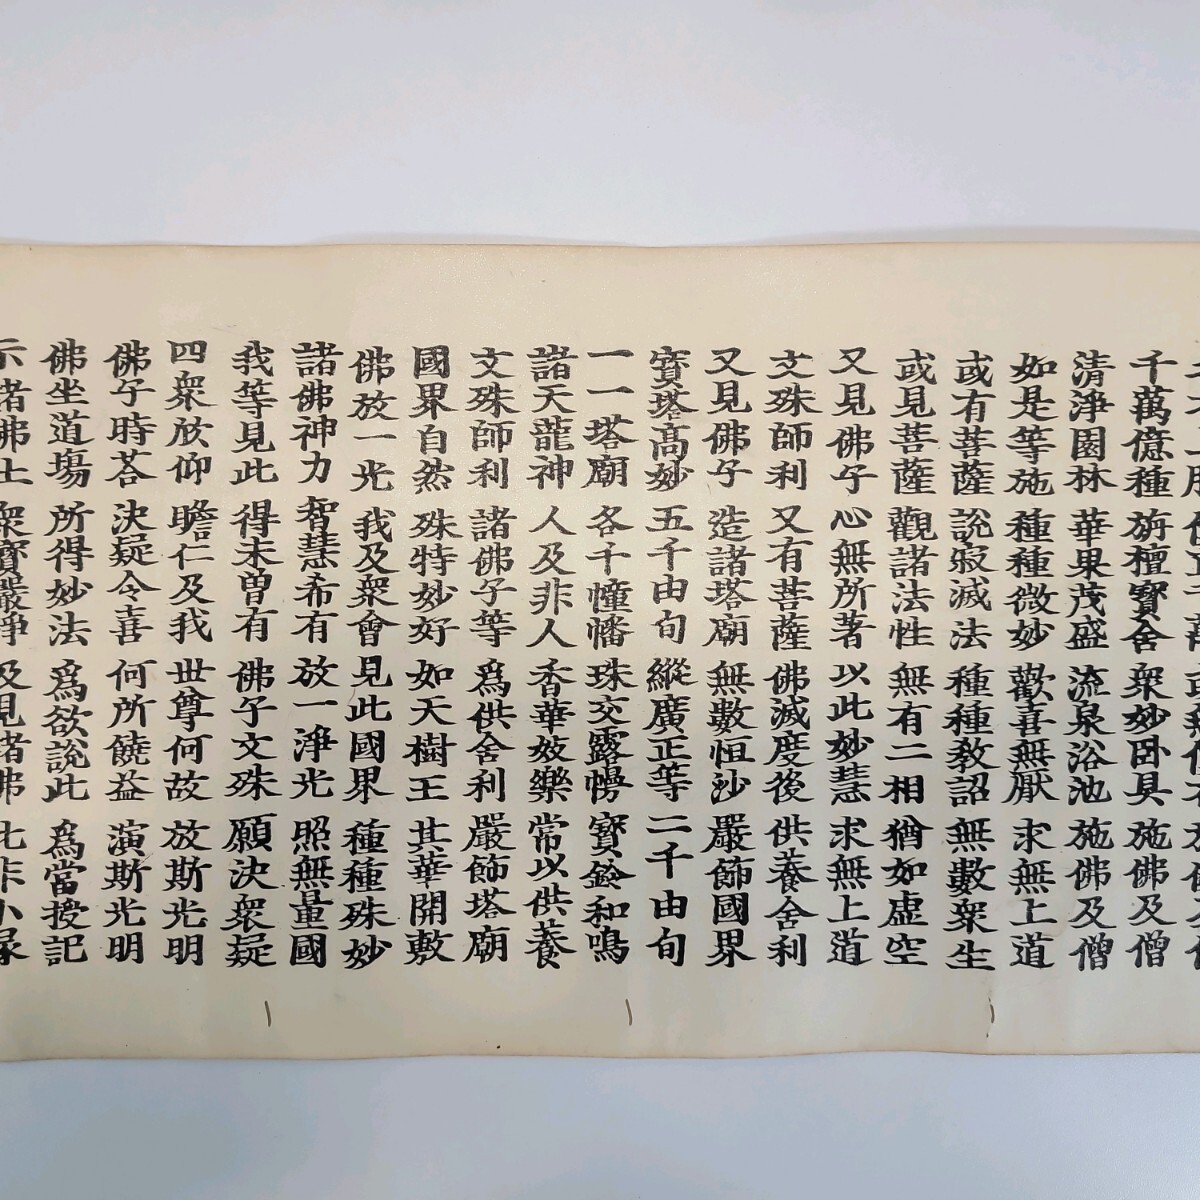 千萬億種 旃檀寶舍 衆妙臥具 施佛及僧
清淨園林 華果茂盛 流泉浴池 施佛及僧
如是等施 種種微妙 歡喜無厭 求無上道
或有菩薩 說寂滅法 種種教詔 無數衆生
或見菩薩 觀諸法性 無有二相 猶如虛空
又見佛子 心無所著 以此妙慧 求無上道
文殊師利 又有菩薩 佛滅度後 供養舍利
又見佛子 造諸塔廟 無數恒沙 嚴飾國界
寶塔高妙 五千由旬 縱廣正等 二千由旬
一一塔廟 各千幢幡 珠交露幔 寶鈴和鳴
諸天龍神 人及非人 香華妓樂 常以供養
文殊師利 諸佛子等 爲供舍利 嚴飾塔廟
國界自然 殊特妙好 如天樹王 其華開敷
佛放一光 我及衆會 見此國界 種種殊妙
諸佛神力 智慧希有 放一淨光 照無量國
我等見此 得未曽有 佛子文殊 願決衆疑
四衆欣仰 瞻仁及我 世尊何故 放斯光明
佛子時荅 決疑令喜 何所饒益 演斯光明
佛坐道塲 所得妙法 爲欲說此 爲當授記
示諸佛土 衆寶嚴淨 及見諸佛 此非小緣